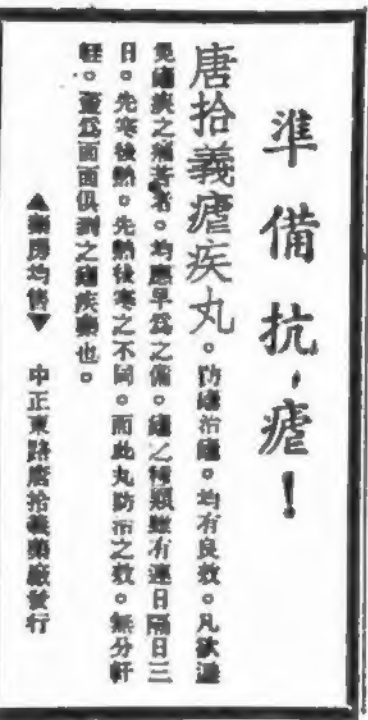 準備抗瘧！
唐拾義瘧疾丸。防瘧治瘧。均有良效。凡欲避
免瘧疾之痛苦者。均應早爲之備。瘧之種類雖有連日隔日三
日。先寒後熱。先熱後寒之不同。而此丸防治之效。無分軒
輊。誠爲面面俱到之瘧疾藥也。
▲藥房均售▼　中正東路唐拾義藥廠發行